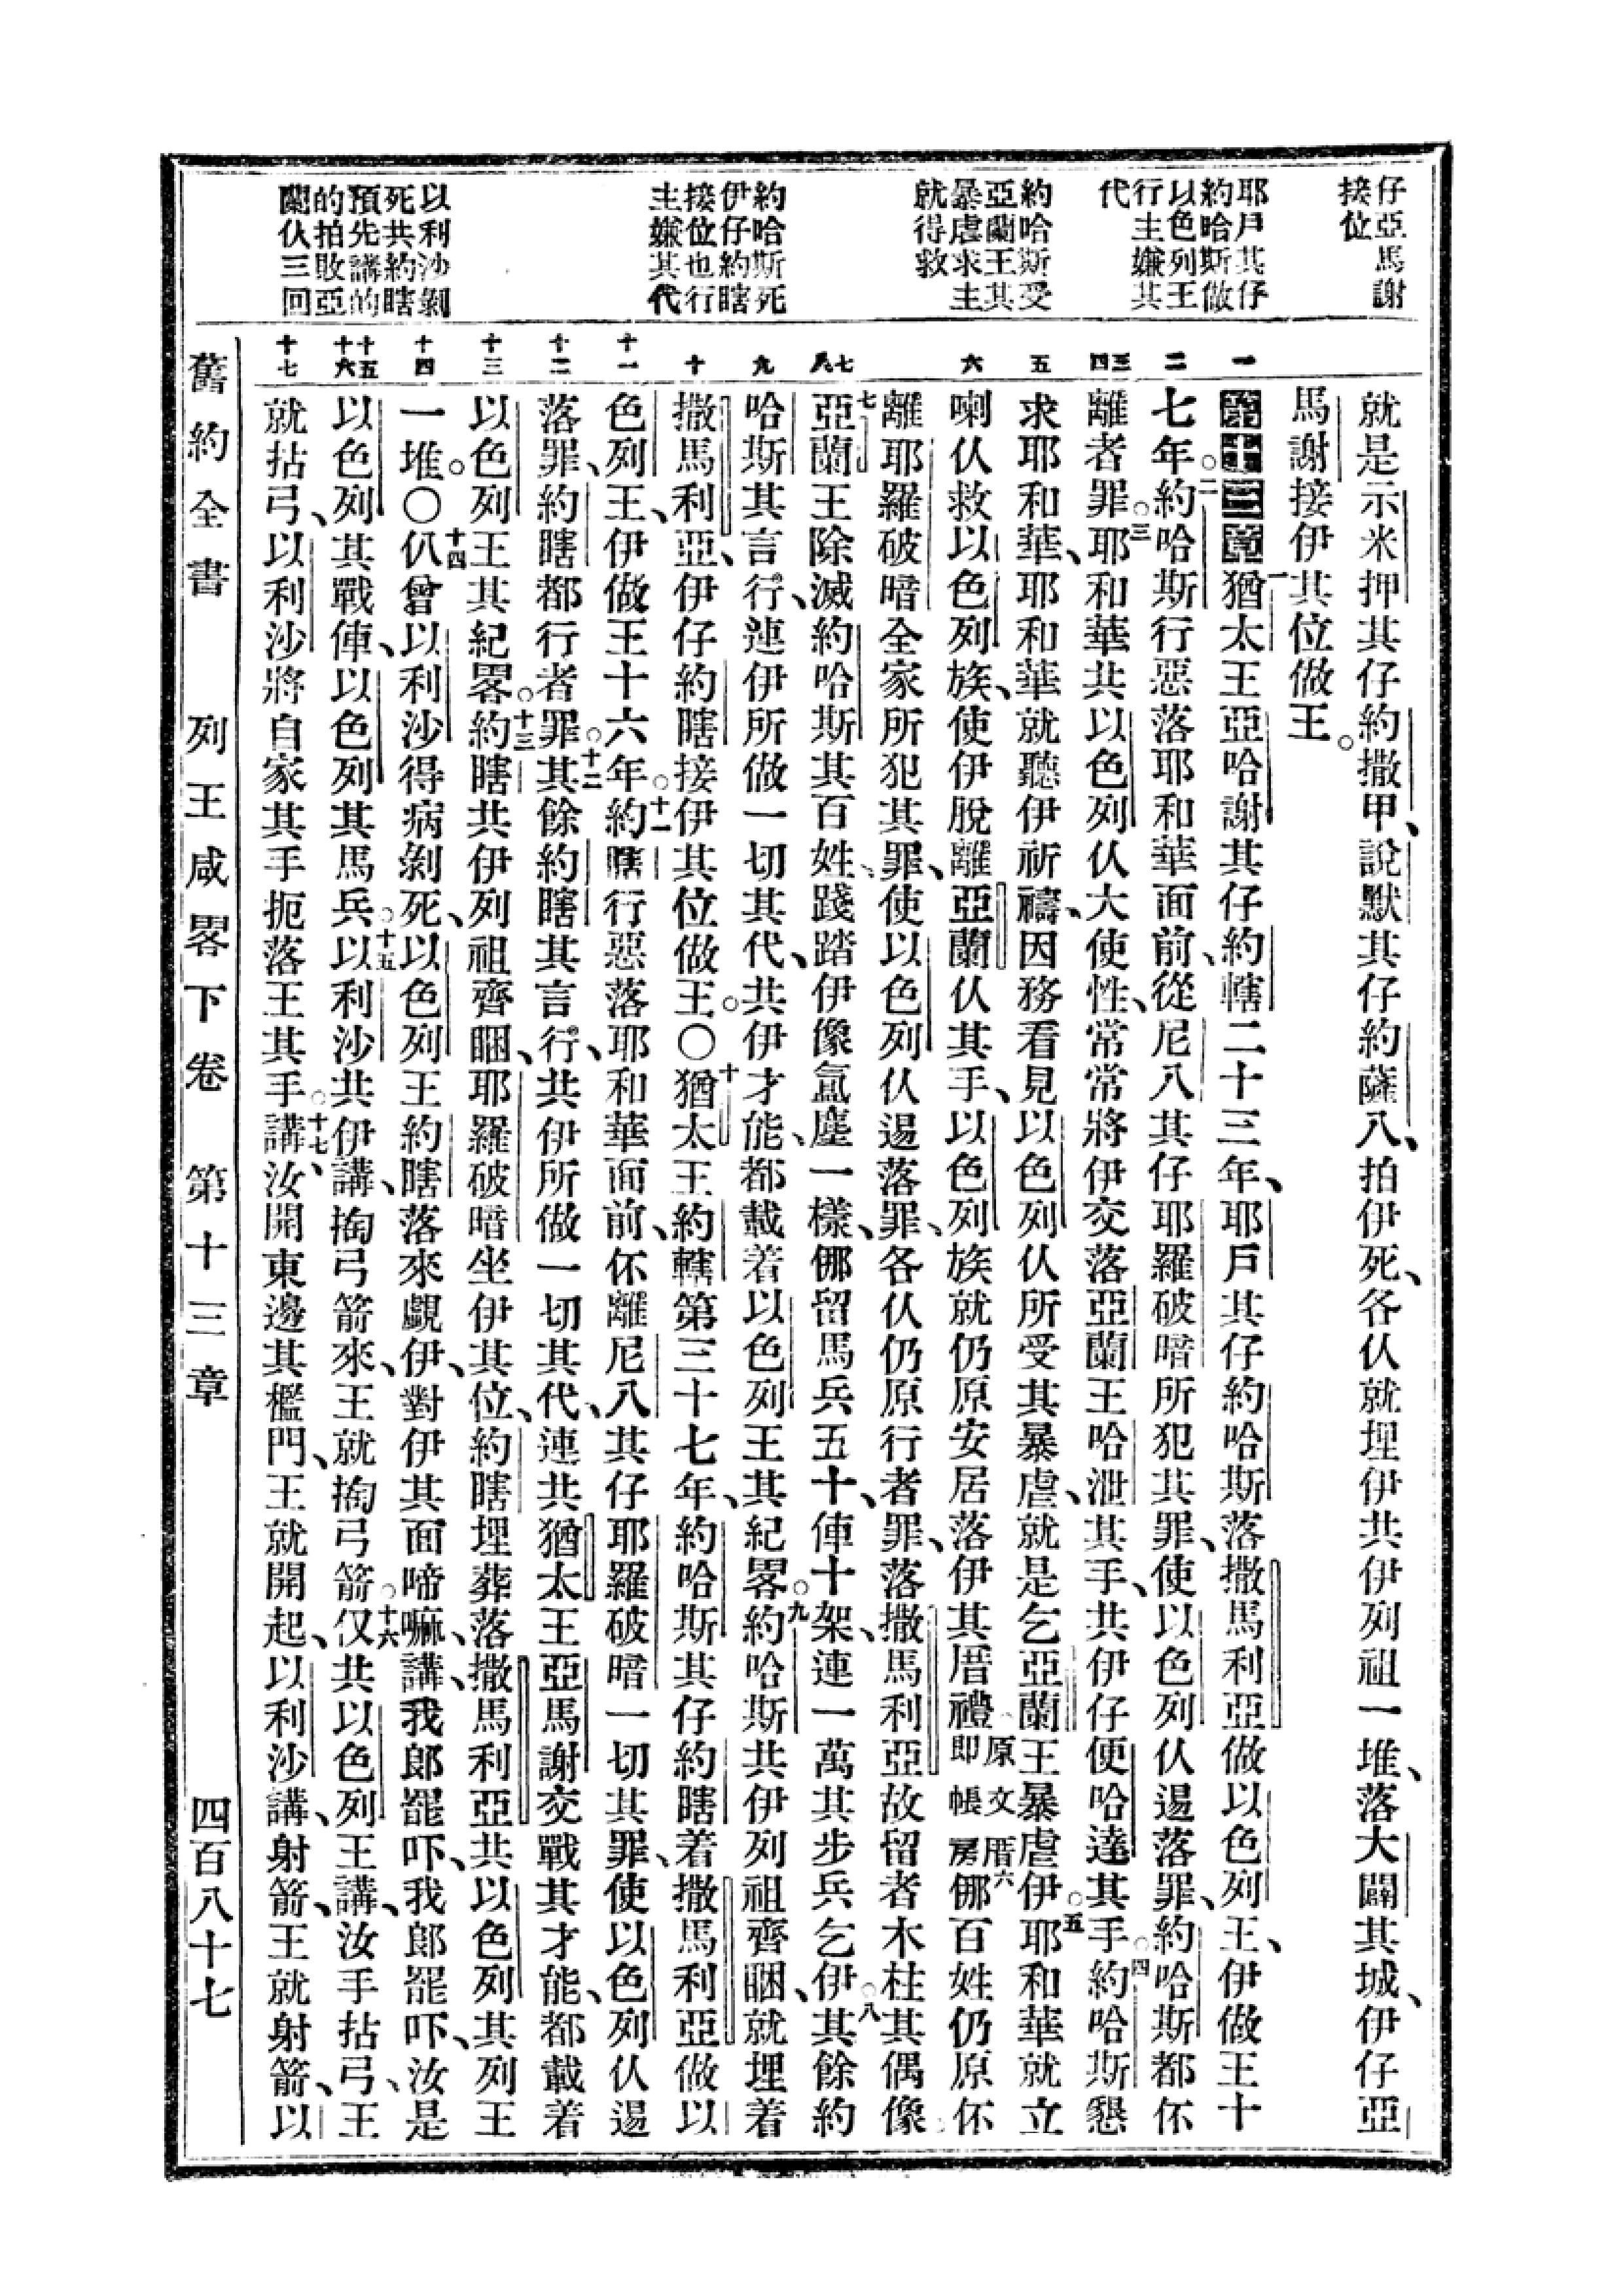 仔亞馬謝
接位
耶戶其仔
約哈斯做
以色列王
行主嫌其
代
約哈斯受
亞蘭王其
暴虐求主
就得救
約哈斯死
伊仔約瞎
接位也行
主嫌其代
以利沙剝
死共約瞎
預先講的
的拍敗亞
蘭仈三回
一
二
三四
五
六
七八
九
十
十一
十二
十三
十四
十五十六
十七
就是示米押其仔約撒甲、說默其仔約薩八、拍伊死、各仈就埋伊共伊列祖一堆、落大闢其城、伊仔亞
馬謝接伊其位做王。
第十三章一猶太王亞哈謝其仔約轄二十三年、耶戶其仔約哈斯落撒馬利亞做以色列王、伊做王十
七年。二約哈斯行惡落耶和華面前、從尼八其仔耶羅破暗所犯其罪、使以色列仈逿落罪、約哈斯都伓
離者罪。三耶和華共以色列仈大使性、常常將伊交落亞蘭王哈泄其手、共伊仔便哈達其手。四約哈斯懇
求耶和華、耶和華就聽伊祈禱、因務看見以色列仈所受其暴虐、就是乞亞蘭王暴虐伊。五耶和華就立
喇仈救以色列族、使伊脫離亞蘭仈其手、以色列族就仍原安居落伊其厝禮原文厝即帳房六㑚百姓仍原伓
離耶羅破暗全家所犯其罪、使以色列仈逿落罪、各仈仍原行者罪、落撒馬利亞故留者木柱其偶像
七亞蘭王除滅約哈斯其百姓、踐踏伊像𡏛塵一樣、㑚留馬兵五十、俥十架、連一萬其步兵乞伊。八其餘約
哈斯其言行、連伊所做一切其代、共伊才能、都載着以色列王其紀畧。九約哈斯共伊列祖齊睏、就埋着
撒馬利亞、伊仔約瞎接伊其位做王。〇十猶太王約轄第三十七年、約哈斯其仔約瞎着撒馬利亞做以
色列王、伊做王十六年。十一約瞎行惡落耶和華面前、伓離尼八其仔耶羅破暗一切其罪、使以色列仈逿
落罪、約瞎都行者罪。十二其餘約瞎其言行、共伊所做一切其代、連共猶太王亞馬謝交戰其才能、都載着
以色列王其紀畧。十三約瞎共伊列祖齊睏、耶羅破暗坐伊其位、約瞎埋葬落撒馬利亞共以色列其列王
一堆。〇十四仈曾以利沙得病剝死、以色列王約瞎落來覷伊、對伊其面啼嘛、講、我郎罷吓、我郎罷吓、汝是
以色列其戰俥、以色列其馬兵。十五以利沙共伊講、掏弓箭來、王就掏弓箭。十六仅共以色列王講、汝手拈弓、王
就拈弓、以利沙將自家其手扼落王其手。十七講、汝開東邊其檻門、王就開起、以利沙講、射箭、王就射箭、以
舊約全書 列王咸畧下卷 第十三章 四百八十七